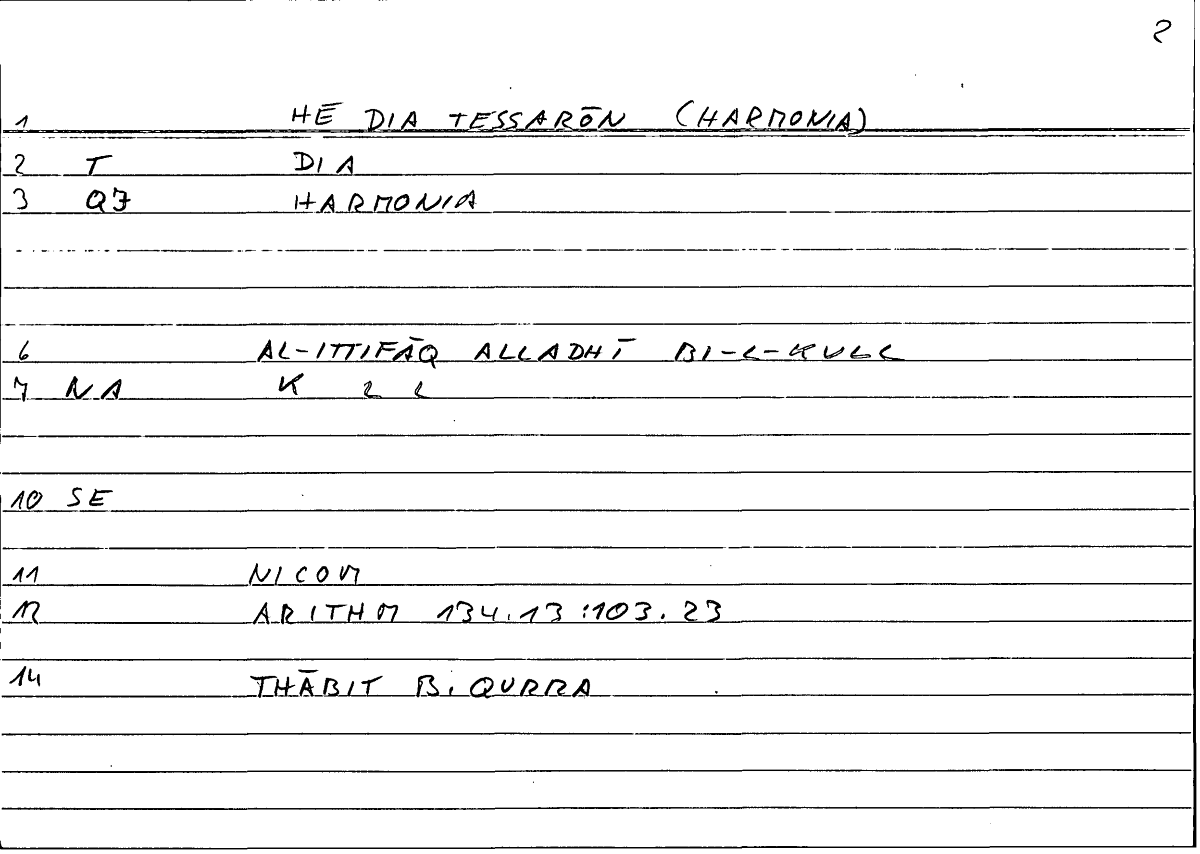 2
1 HĒ DIA TESSARŌN (HARMONIA)
2 T DIA
3 Q7 HARMONIA
6 AL-ITTIFĀQ ALLADHĪ BI-L-KULL
7 NA K L L
10 SE
11 NICOM
12 ARITHM 134.13:103.23
14 THĀBIT B. QURRA